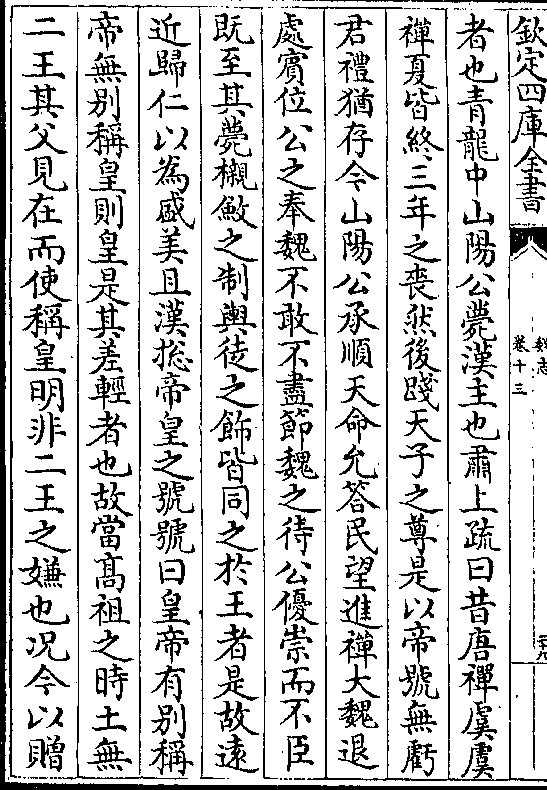 欽定四庫全書
魏志
卷十三
二十九
者也青龍中山陽公薨漢主也肅上疏曰昔唐禪虞虞
禪夏皆終三年之喪然後踐天子之尊是以帝號無虧
君禮猶存今山陽公承順天命允答民望進禪大魏退
處賓位公之奉魏不敢不盡節魏之待公優崇而不臣
既至其薨櫬斂之制輿徒之飾皆同之於王者是故遠
近歸仁以為盛美且漢揔帝皇之號號曰皇帝有别稱
帝無别稱皇則皇是其差輕者也故當髙祖之時土無
二王其父見在而使稱皇明非二王之嫌也况今以贈